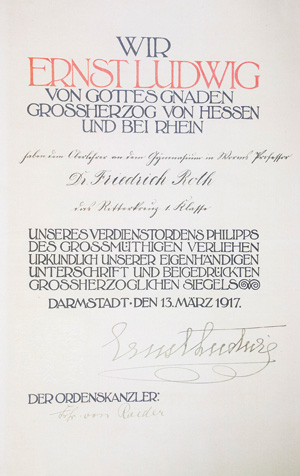 WIR
ERNST LUDWIG
VON GOTTES GNADEN
GROSSHERZOG VON HESSEN
UND BEI RHEIN
haben dem Oberlehrer an dem Gymnasium in Worms Professor
Dr. Friedrich Roth
das Ritterkreuz 1. Klasse
UNSERES VERDIENSTORDENS PHILIPPS
DES GROSSMÜTHIGEN VERLIEHEN
URKUNDLICH UNSERER EIGENHÄNDIGEN
UNTERSCHRIFT UND BEIGEDRÜCKTEN
GROSSHERZOGLICHEN SIEGELS
DARMSTADT · DEN 13. MÄRZ 1917.
Ernst Ludwig
DER ORDENSKANZLER:
von